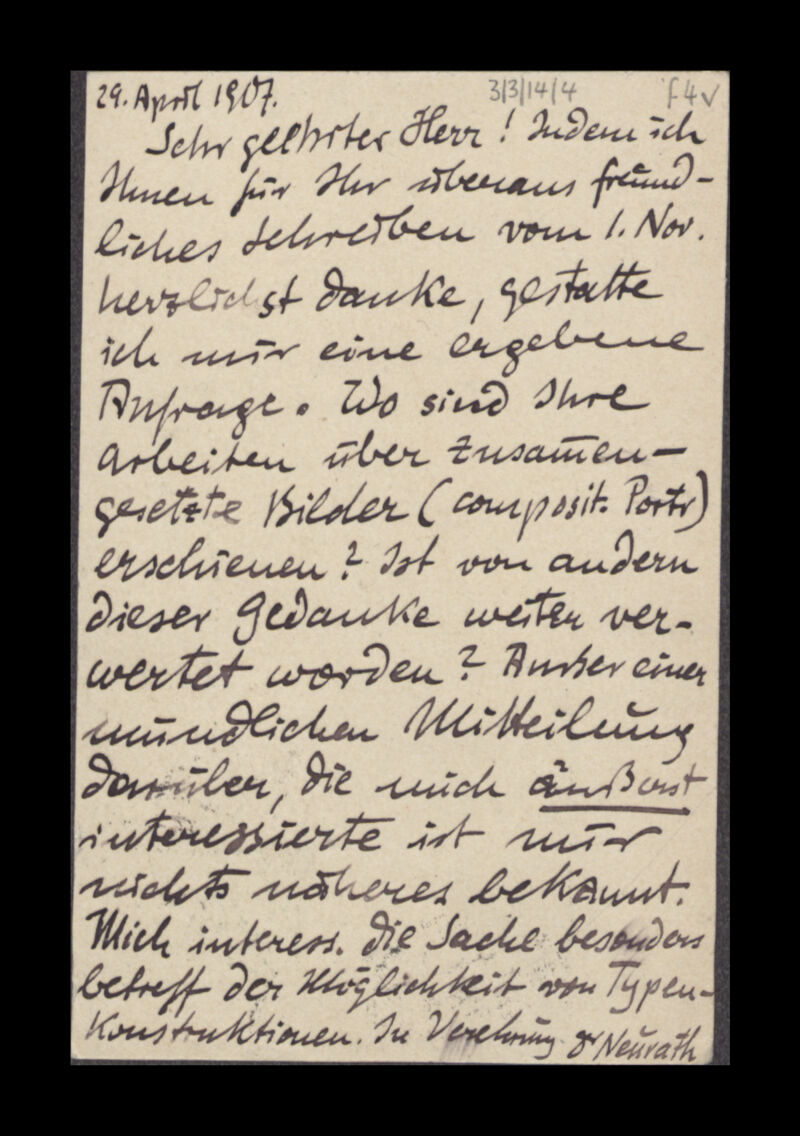 29. April 1907.
3/3/14/4 f4v
Sehr geehrter Herr! Indem ich
Ihnen für Ihr überaus freund-
liches Schreiben vom 1. Nov.
herzlichst danke, gestatte
ich mir eine ergebene
Anfrage. Wo sind Ihre
Arbeiten über zusam̄en-
gesetzte Bilder (composit. Portr)
erschienen? Ist von andern
dieser Gedanke weiter ver-
wertet worden? Außer einer
mündlichen Mitteilung
darüber, die mich äußerst
interessierte ist mir
nichts näheres bekannt.
Mich interess. die Sache besonders
betreff der Möglichkeit von Typen-
Konstruktionen. In Verehrung Dr Neurath